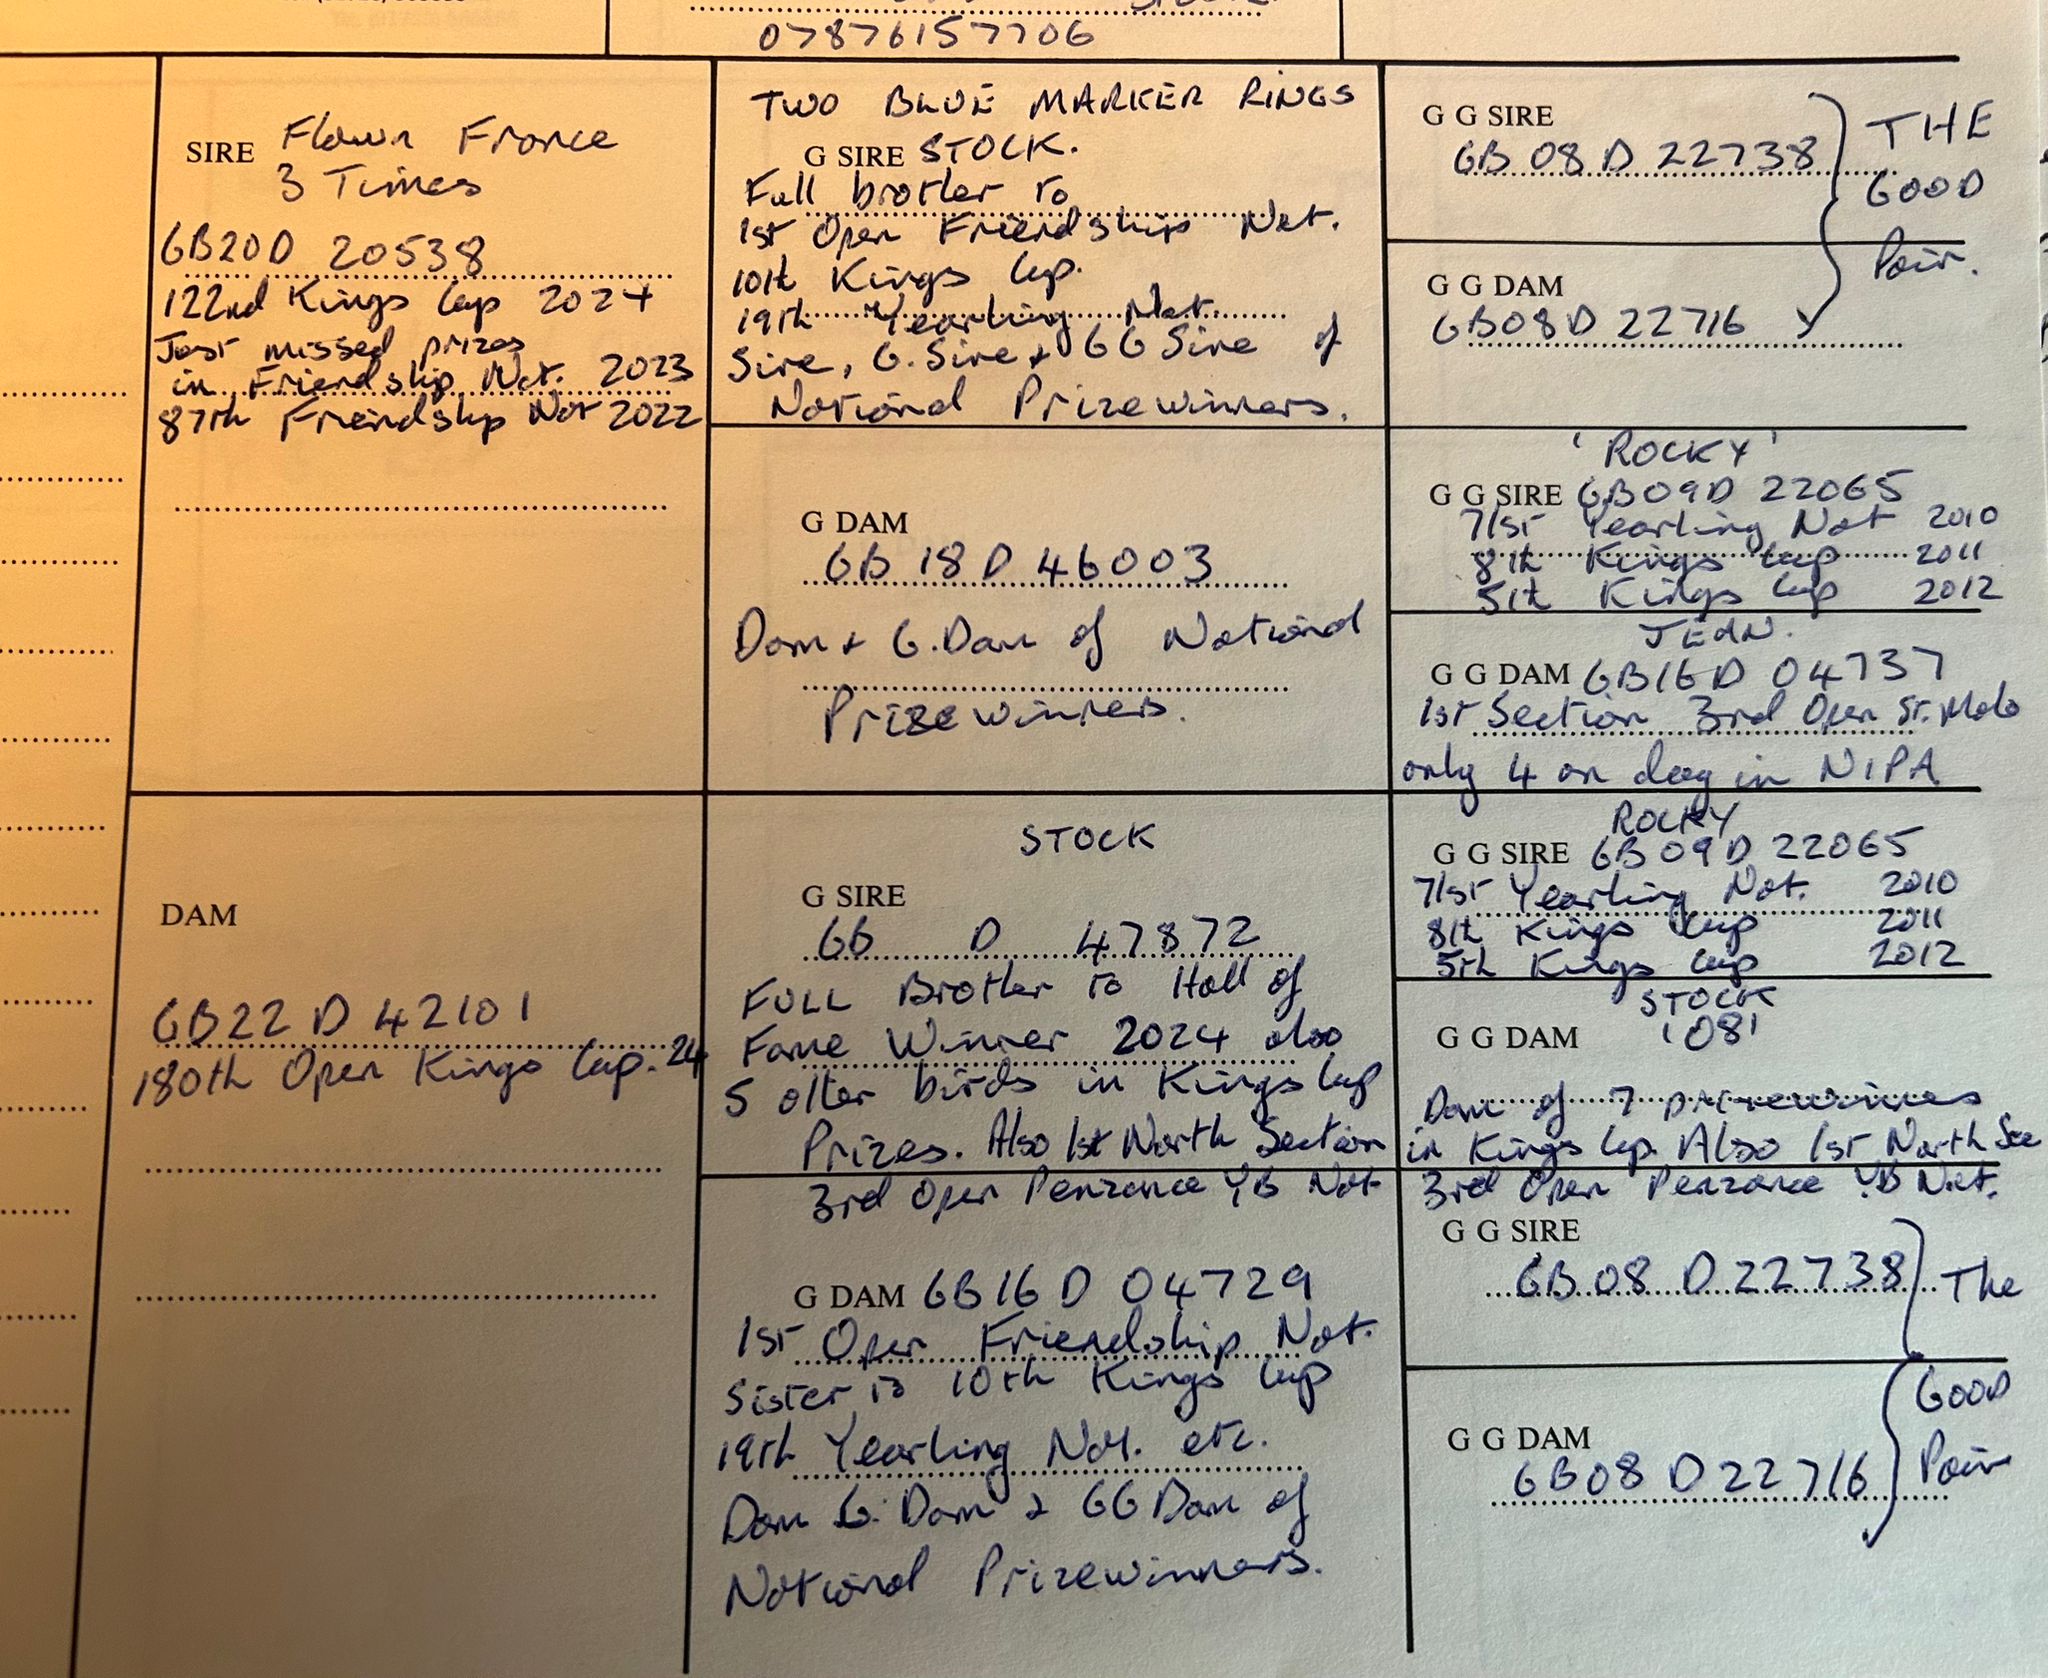 07876157706
SIRE Flown France
3 Times
GB20D 20538
122nd Kings Cup 2024
Just missed prizes
in Friendship Nat. 2023
87th Friendship Nat 2022
TWO BLUE MARKER RINGS
G SIRE STOCK.
Full brother to
1st Open Friendship Nat.
10th Kings Cup.
19th Yearling Nat.
Sire, G.Sire & GG Sire of
National Prizewinners.
G DAM
GB 18 D 46003
Dam & G.Dam of National
Prizewinners.
G G SIRE
GB 08 D 22738
THE
GOOD
Pair.
G G DAM
GB08D 22716
'ROCKY'
G G SIRE GB09D 22065
71st Yearling Nat 2010
8th Kings Cup 2011
5th Kings Cup 2012
JEAN.
G G DAM GB16D 04737
1st Section 3rd Open St. Malo
only 4 on day in NIPA
DAM
GB22 D 42101
180th Open Kings Cup. 24
STOCK
G SIRE
GB D 47872
FULL Brother to Hall of
Fame Winner 2024 also
5 other birds in Kings Cup
Prizes. Also 1st North Section
3rd Open Penzance YB Nat
G DAM GB16D 04729
1st Open Friendship Nat.
Sister to 10th Kings Cup
19th Yearling Nat. etc.
Dam G. Dam & GG Dam of
National Prizewinners.
ROCKY
G G SIRE GB09D 22065
71st Yearling Nat. 2010
8th Kings Cup 2011
5th Kings Cup 2012
STOCK
G G DAM '081
Dam of 7 prizewinners
in Kings Cup. Also 1st North Sec
3rd Open Penzance YB Nat.
G G SIRE
GB08 D 22738
The
Good
Pair
G G DAM
GB08 D 22716